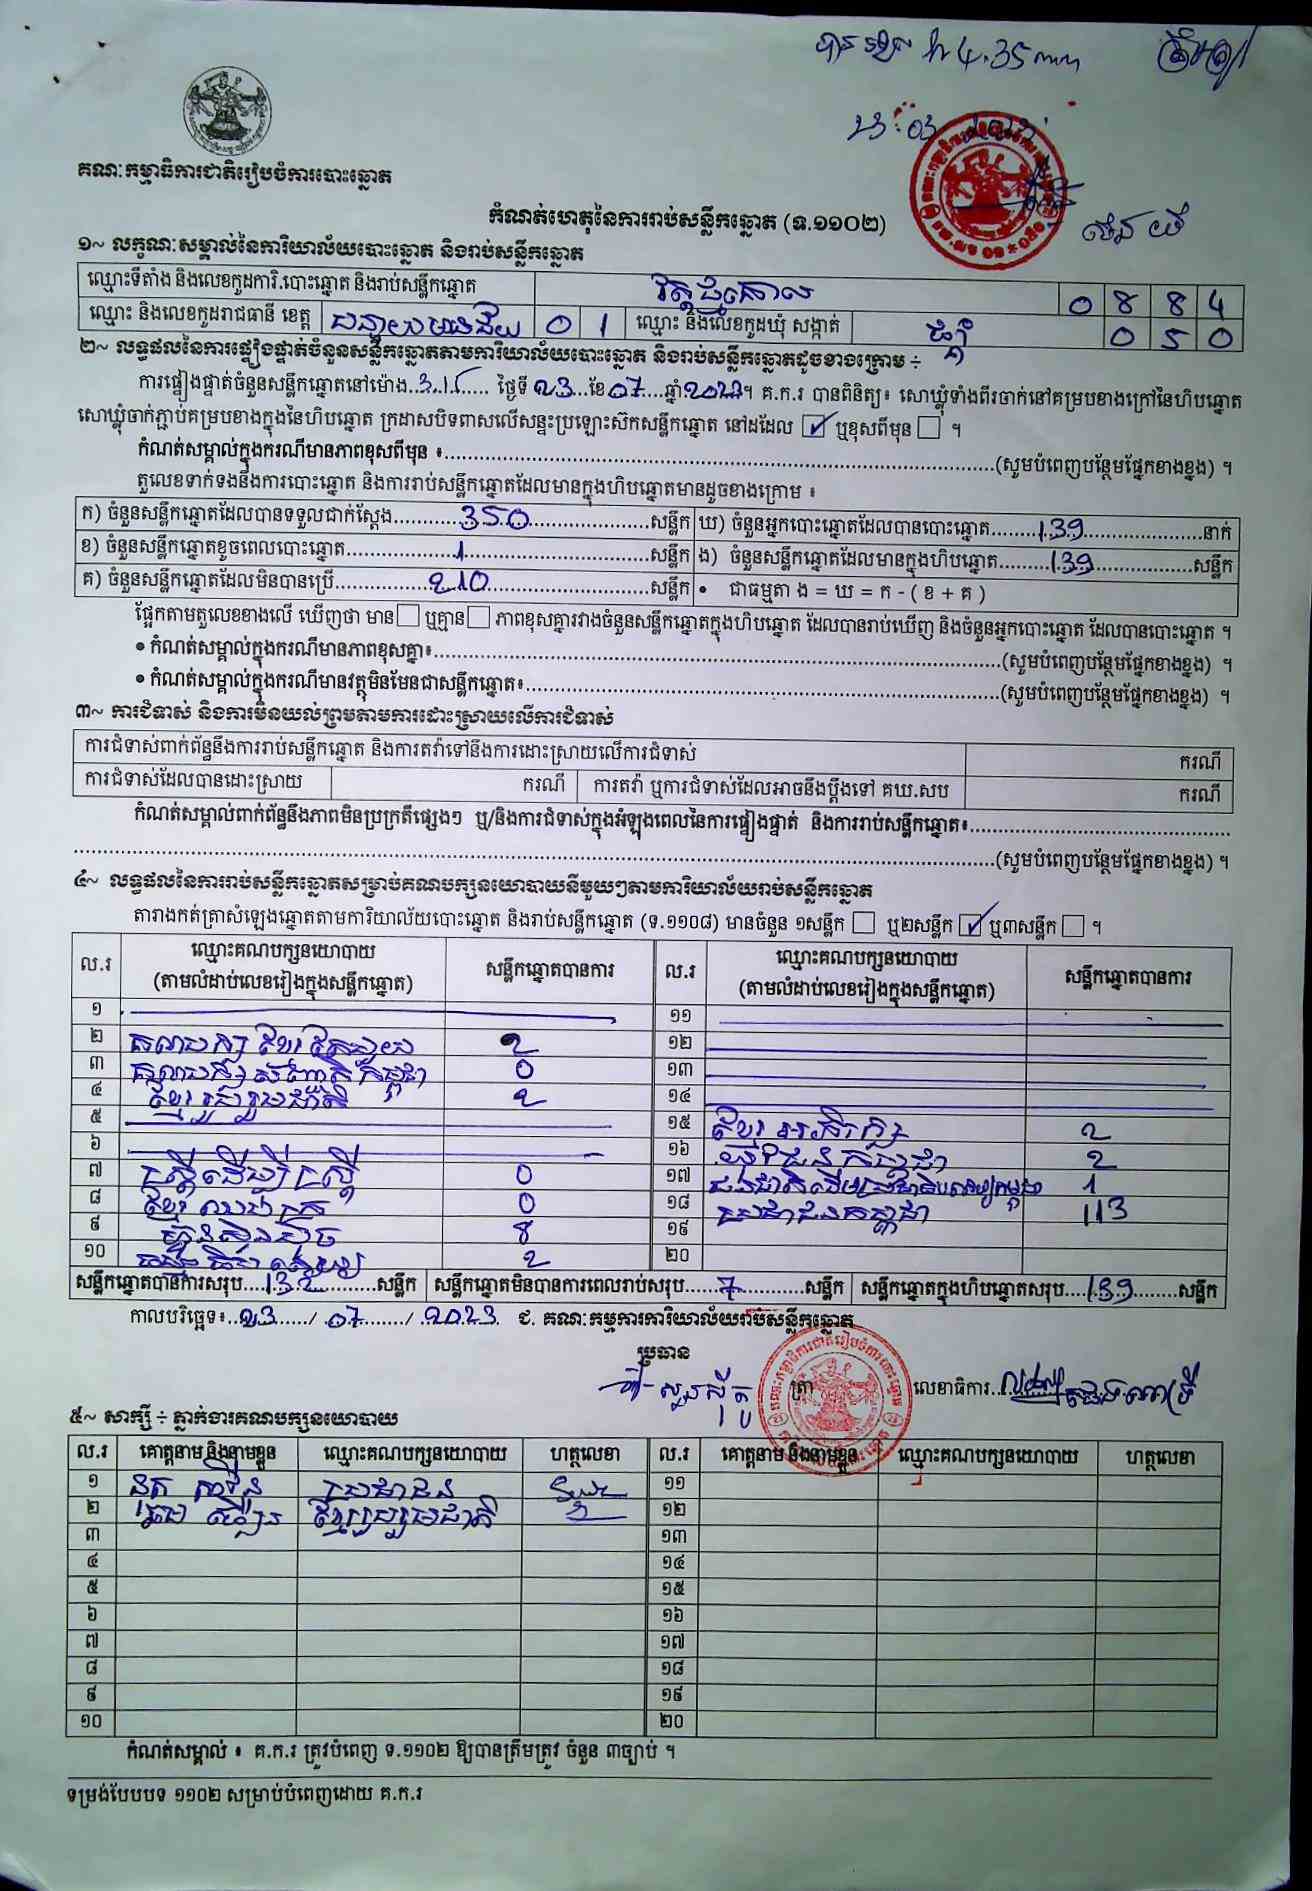 4.35
គណៈកម្មាធិការជាតិរៀបចំការបោះឆ្នោត
កំណត់ហេតុនៃការរាប់សន្លឹកឆ្នោត (ទ.១១០២)
១~ លក្ខណៈសម្គាល់នៃការិយាល័យបោះឆ្នោត និងរាប់សន្លឹកឆ្នោត
ឈ្មោះទីតាំង និងលេខកូដការិ.បោះឆ្នោត និងរាប់សន្លឹកឆ្នោត 0 8 8 4
ឈ្មោះ និងលេខកូដរាជធានី ខេត្ត បន្ទាយមានជ័យ 0 1 ឈ្មោះ និងលេខកូដឃុំ សង្កាត់ 0 5 0
២~ លទ្ធផលនៃការផ្ទៀងផ្ទាត់ចំនួនសន្លឹកឆ្នោតតាមការិយាល័យបោះឆ្នោត និងរាប់សន្លឹកឆ្នោតដូចខាងក្រោម ÷
ការផ្ទៀងផ្ទាត់ចំនួនសន្លឹកឆ្នោតនៅម៉ោង 3:15 ថ្ងៃទី 23 ខែ 07 ឆ្នាំ 2023។ គ.ក.រ បានពិនិត្យ៖ សោឃ្លុំទាំងពីរចាក់នៅគម្របខាងក្រៅនៃហិបឆ្នោត
សោឃ្លុំចាក់ភ្ជាប់គម្របខាងក្នុងនៃហិបឆ្នោត ក្រដាសបិទពាសលើសន្ទះប្រឡោះស៊កសន្លឹកឆ្នោត នៅដដែល ☑ ឬខុសពីមុន ☐ ។
កំណត់សម្គាល់ក្នុងករណីមានភាពខុសពីមុន ៖ (សូមបំពេញបន្ថែមផ្នែកខាងខ្នង) ។
តួលេខទាក់ទងនឹងការបោះឆ្នោត និងការរាប់សន្លឹកឆ្នោតដែលមានក្នុងហិបឆ្នោតមានដូចខាងក្រោម ៖
ក) ចំនួនសន្លឹកឆ្នោតដែលបានទទួលជាក់ស្តែង 350 សន្លឹក ឃ) ចំនួនអ្នកបោះឆ្នោតដែលបានបោះឆ្នោត 139 នាក់
ខ) ចំនួនសន្លឹកឆ្នោតខូចពេលបោះឆ្នោត 1 សន្លឹក ង) ចំនួនសន្លឹកឆ្នោតដែលមានក្នុងហិបឆ្នោត 139 សន្លឹក
គ) ចំនួនសន្លឹកឆ្នោតដែលមិនបានប្រើ 210 សន្លឹក • ជាធម្មតា ង = ឃ = ក - ( ខ + គ )
ផ្អែកតាមតួលេខខាងលើ ឃើញថា មាន ☐ ឬគ្មាន ☐ ភាពខុសគ្នារវាងចំនួនសន្លឹកឆ្នោតក្នុងហិបឆ្នោត ដែលបានរាប់ឃើញ និងចំនួនអ្នកបោះឆ្នោត ដែលបានបោះឆ្នោត ។
• កំណត់សម្គាល់ក្នុងករណីមានភាពខុសគ្នា៖ (សូមបំពេញបន្ថែមផ្នែកខាងខ្នង) ។
• កំណត់សម្គាល់ក្នុងករណីមានវត្ថុមិនមែនជាសន្លឹកឆ្នោត៖ (សូមបំពេញបន្ថែមផ្នែកខាងខ្នង) ។
៣~ ការជំទាស់ និងការមិនយល់ព្រមតាមការដោះស្រាយលើការជំទាស់
ការជំទាស់ពាក់ព័ន្ធនឹងការរាប់សន្លឹកឆ្នោត និងការតវ៉ាទៅនឹងការដោះស្រាយលើការជំទាស់ ករណី
ការជំទាស់ដែលបានដោះស្រាយ ករណី ការតវ៉ា ឬការជំទាស់ដែលអាចនឹងប្តឹងទៅ គឃ.សប ករណី
កំណត់សម្គាល់ពាក់ព័ន្ធនឹងភាពមិនប្រក្រតីផ្សេងៗ ឬ/និងការជំទាស់ក្នុងអំឡុងពេលនៃការផ្ទៀងផ្ទាត់ និងការរាប់សន្លឹកឆ្នោត៖
(សូមបំពេញបន្ថែមផ្នែកខាងខ្នង) ។
៤~ លទ្ធផលនៃការរាប់សន្លឹកឆ្នោតសម្រាប់គណបក្សនយោបាយនីមួយៗតាមការិយាល័យរាប់សន្លឹកឆ្នោត
តារាងកត់ត្រាសំឡេងឆ្នោតតាមការិយាល័យបោះឆ្នោត និងរាប់សន្លឹកឆ្នោត (ទ.១១០៨) មានចំនួន ១សន្លឹក ☐ ឬ២សន្លឹក ☑ ឬ៣សន្លឹក ☐ ។
ល.រ ឈ្មោះគណបក្សនយោបាយ (តាមលំដាប់លេខរៀងក្នុងសន្លឹកឆ្នោត) សន្លឹកឆ្នោតបានការ ល.រ ឈ្មោះគណបក្សនយោបាយ (តាមលំដាប់លេខរៀងក្នុងសន្លឹកឆ្នោត) សន្លឹកឆ្នោតបានការ
១ ១១
២ គណបក្ស ខ្មែរ 2 ១២
៣ គណបក្ស កម្ពុជា 0 ១៣
៤ ខ្មែររួបរួមជាតិ 2 ១៤
៥ ១៥ ខ្មែរអភិរក្ស 2
៦ ១៦ យុវជនកម្ពុជា 2
៧ ស្ត្រីដើម្បីស្ត្រី 0 ១៧ 1
៨ ខ្មែរឈប់ក្រ 0 ១៨ ប្រជាជនកម្ពុជា 113
៩ ហ៊្វុនស៊ិនប៉ិច 8 ១៩
១០ 2 ២០
សន្លឹកឆ្នោតបានការសរុប 132 សន្លឹក សន្លឹកឆ្នោតមិនបានការពេលរាប់សរុប 7 សន្លឹក សន្លឹកឆ្នោតក្នុងហិបឆ្នោតសរុប 139 សន្លឹក
កាលបរិច្ឆេទ៖ 23 / 07 / 2023 ជ. គណៈកម្មការការិយាល័យរាប់សន្លឹកឆ្នោត
ប្រធាន
ត្រា លេខាធិការ
៥~ សាក្សី ÷ ភ្នាក់ងារគណបក្សនយោបាយ
ល.រ គោត្តនាម និងនាមខ្លួន ឈ្មោះគណបក្សនយោបាយ ហត្ថលេខា ល.រ គោត្តនាម និងនាមខ្លួន ឈ្មោះគណបក្សនយោបាយ ហត្ថលេខា
១ ប្រជាជន ១១
២ ខ្មែររួបរួមជាតិ ១២
៣ ១៣
៤ ១៤
៥ ១៥
៦ ១៦
៧ ១៧
៨ ១៨
៩ ១៩
១០ ២០
កំណត់សម្គាល់ ៖ គ.ក.រ ត្រូវបំពេញ ទ.១១០២ ឱ្យបានត្រឹមត្រូវ ចំនួន ៣ច្បាប់ ។
ទម្រង់បែបបទ ១១០២ សម្រាប់បំពេញដោយ គ.ក.រ